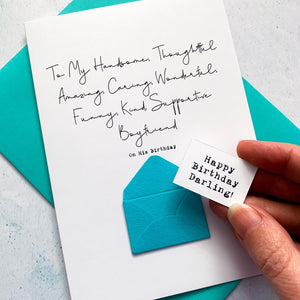 To My Handsome, Thoughtful
Amazing, Caring, Wonderful,
Funny, Kind, Supportive
Boyfriend
On His Birthday
Happy
Birthday
Darling!